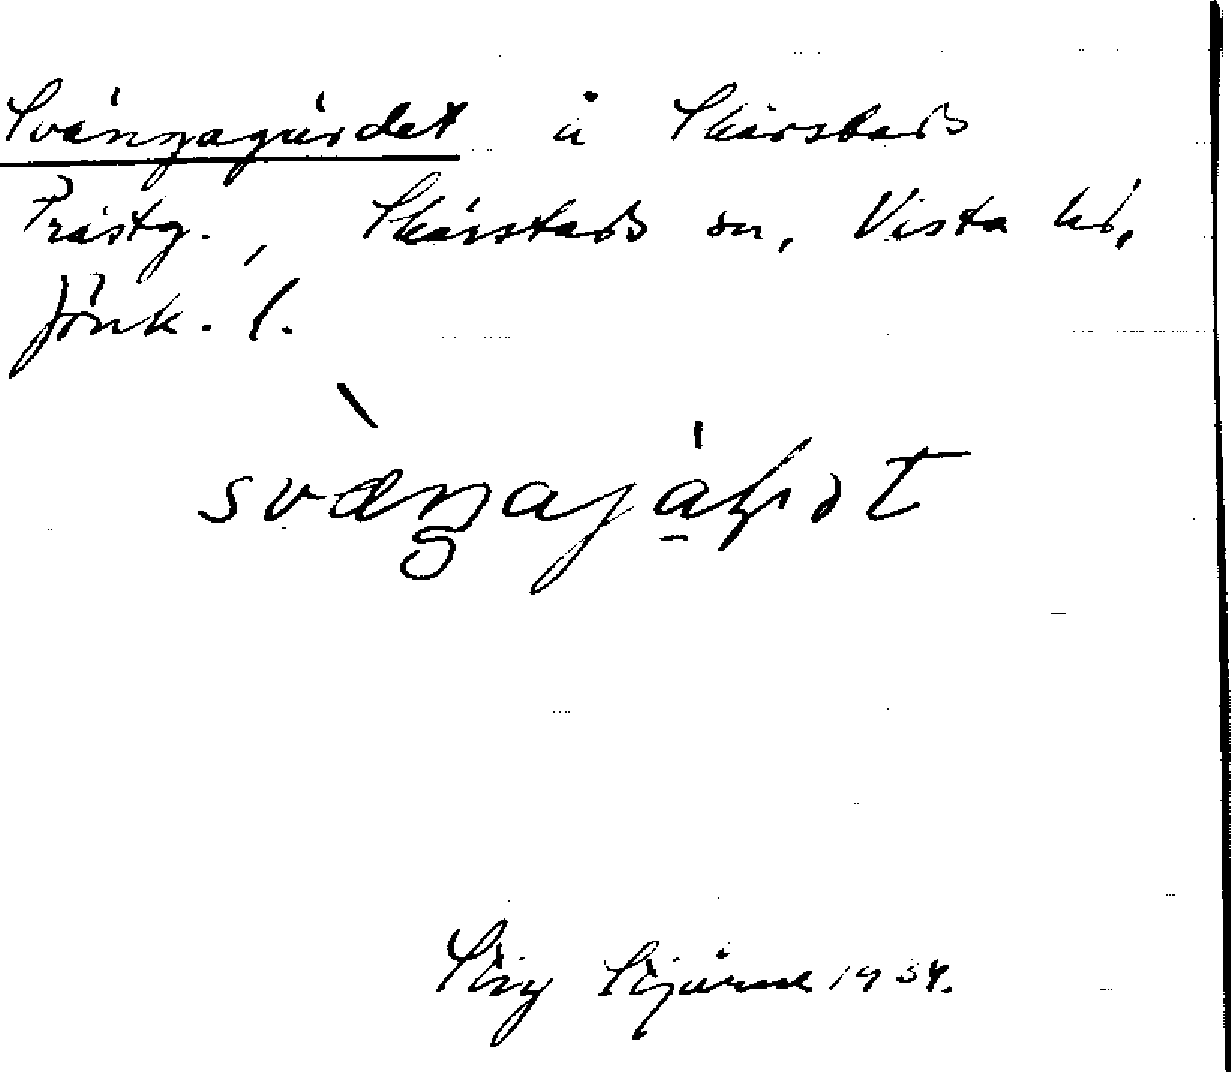 Svängagärdet å Skärstads
Prästg., Skärstads sn, Vista hd,
Jönk. l.
svæŋajäḷdət
Stig Stjärne 1934.